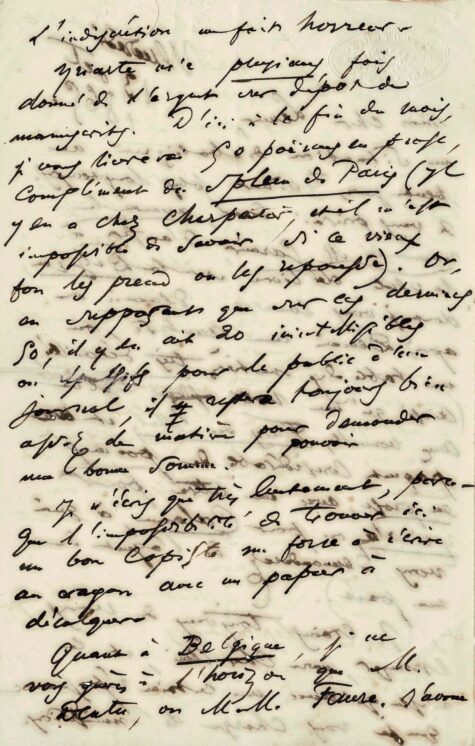 L'indiscrétion me fait horreur.
Yriarte m'a plusieurs fois
donné de l'argent sur dépôt de
manuscrits. D'ici à la fin du mois,
je vous livrerai 50 poèmes en prose,
complément du Spleen de Paris (il
y en a chez Charpentier, et il m'est
impossible de savoir si ce vieux
fou les prend ou les repousse). Or,
en supposant que sur ces derniers
50, il y en ait 20 inintelligibles
ou répulsifs pour le public d'un
journal, il restera toujours bien
assez de matière pour pouvoir demander
une bonne somme.
Je n'écris que très lentement, parce
que l'impossibilité de trouver ici
un bon copiste me force à écrire
au crayon avec un papier à
décalquer.
Quant à Belgique, je ne
vois guère à l'horizon que M.
Dentu, ou M.M. Faure. J'avoue